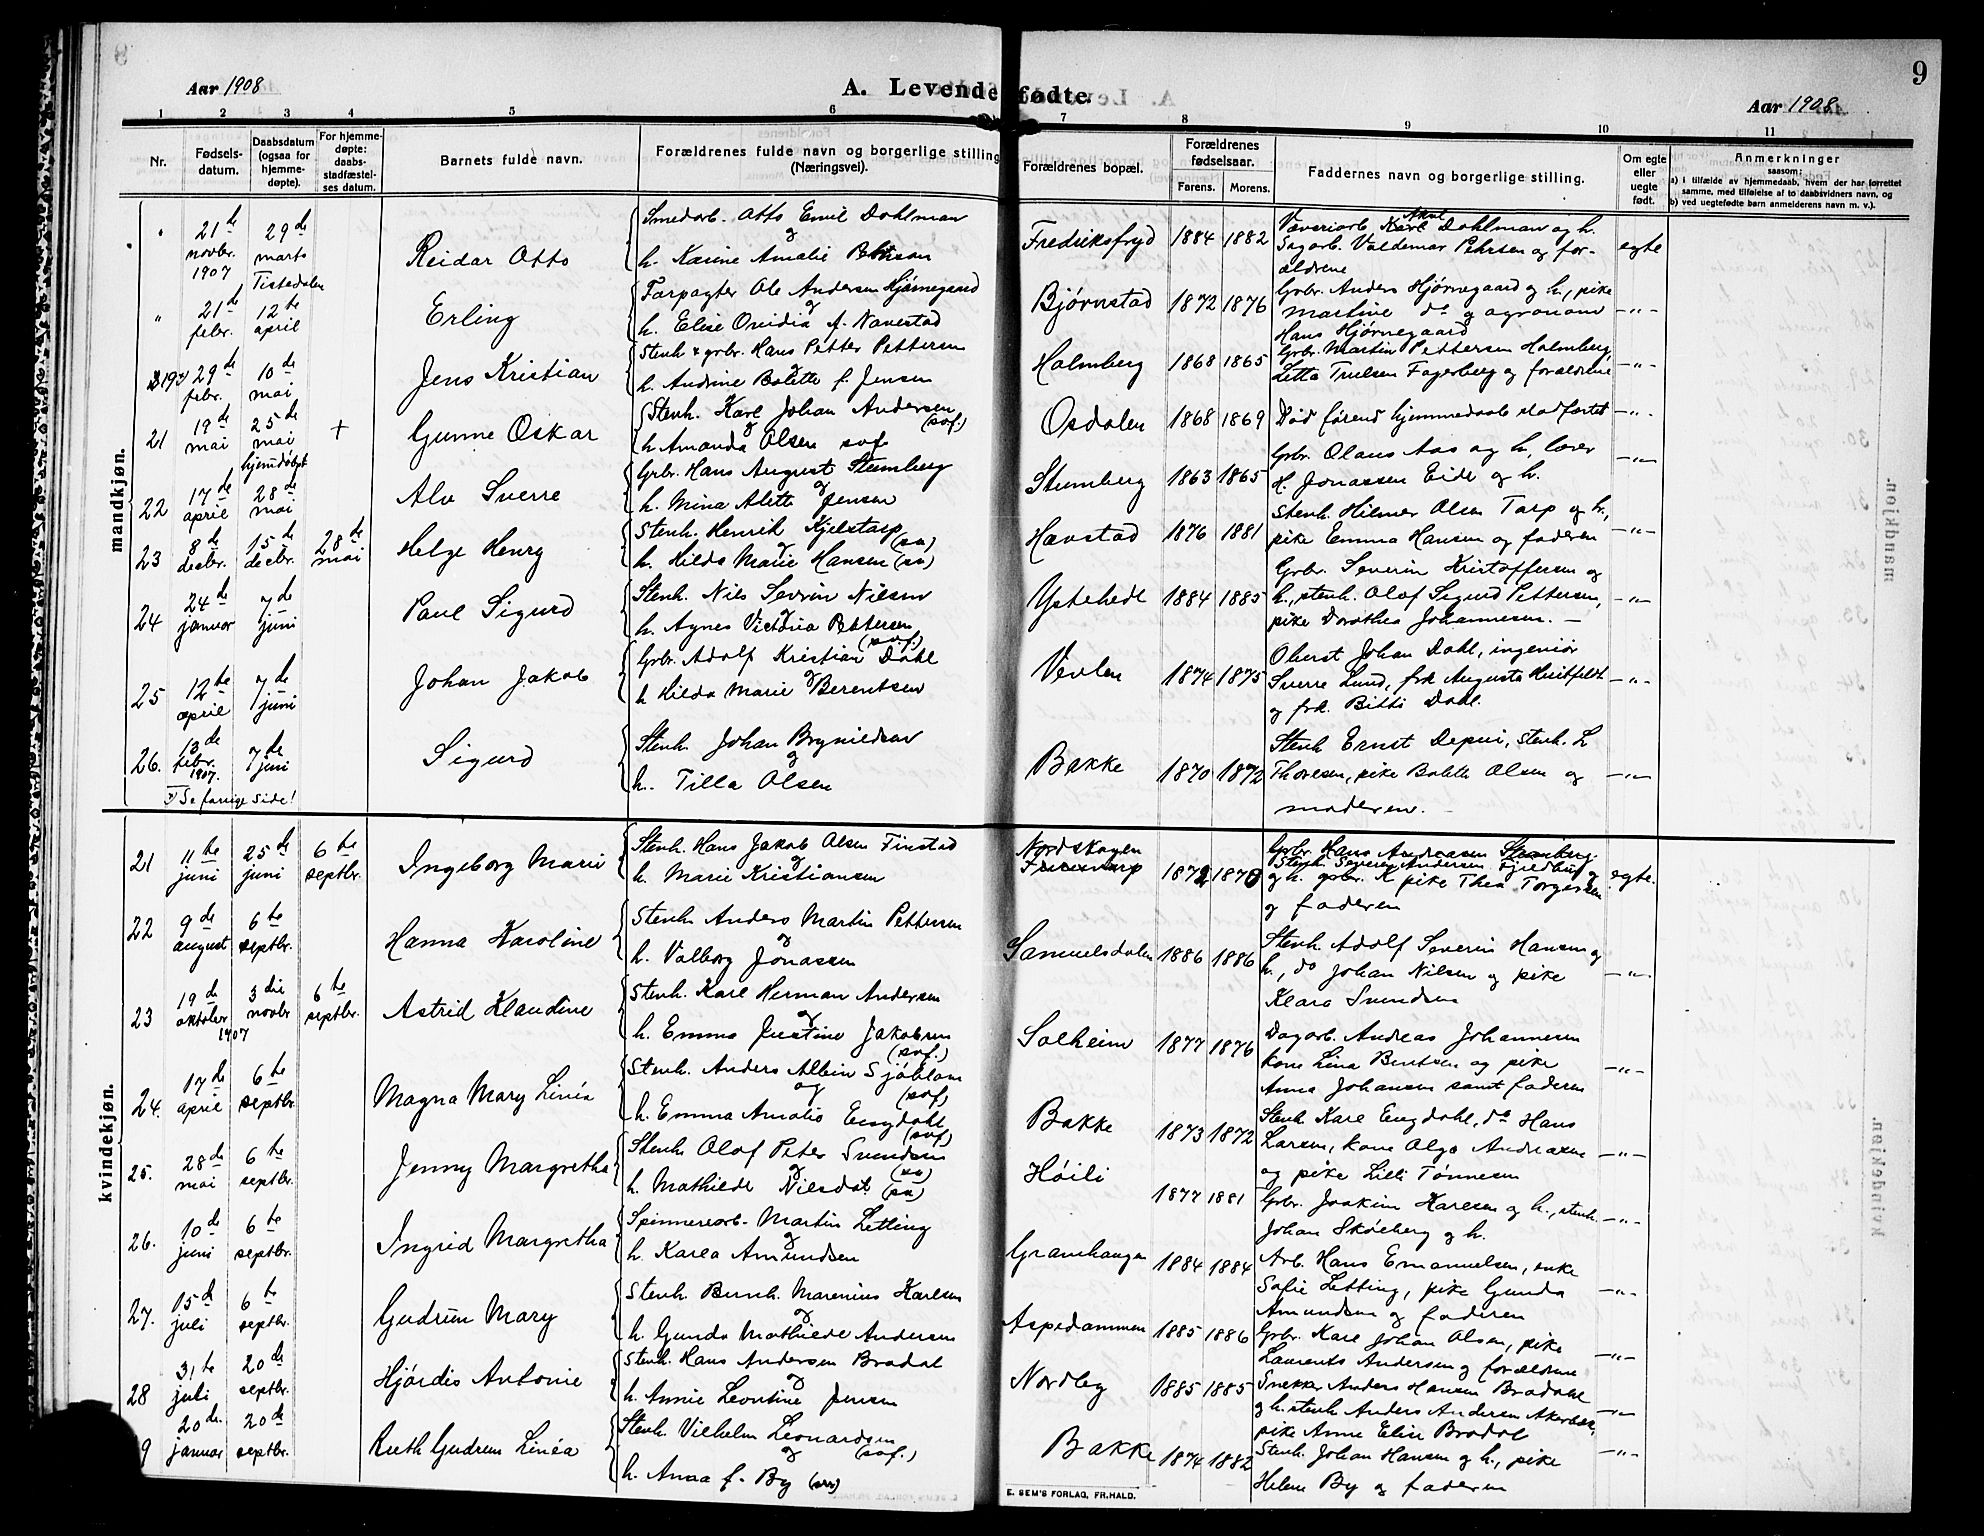 9
Aar 1908
A. Levende fødte.
Aar 1908
1 2 3 4 5 6 7 8 9 10 11
Nr.
Fødsels-
datum.
Daabsdatum
(ogsaa for
hjemme-
døpte).
For hjemme-
døpte:
daabs-
stadfæstel-
ses datum.
Barnets fulde navn.
Forældrenes fulde navn og borgerlige stilling
(Næringsvei).
Forældrenes bopæl.
Forældrenes
fødselsaar.
Farens. Morens.
Faddernes navn og borgerlige stilling.
Om egte
eller
uegte
født.
Anmerkninger
saasom:
a) i tilfælde av hjemmedaab, hvem der har forrettet
samme, med tilføielse af to daabsvidners navn, og
b) ved uegtefødte børn anmelderens navn m. v.).
mandkjøn.
" 21de novbr. 1907 29de marts Tistedalen
Reidar Otto
Smedarb. Otto Emil Dahlman
og
h. Karine Amalie
Fredriksfryd 1884 1882
Væveriarb. Axel Dahlman og h.
Sagarb. Valdemar Pehrsen og for-
ældrene
egte
" 21de febr. 12te april
Erling
Forpagter Ole Andersen Hjørnegaard
og
h. Elise Ovidia f. Navestad
Bjørnstad 1872 1876
Grbr. Anders Hjørnegaard og h., pike
Martine do og agronom
Hans Hjørnegaard
-"-
29de febr. 10de mai
Jens Kristian
Stenh. & grbr. Hans Petter Pettersen
og
h. Andrine Bolette f. Jensen
Holmberg 1868 1865
Grbr. Martin Pettersen Holmberg,
Letta Truelsen Fagerberg og forældrene
-"-
21 19de mai 25de mai hjemdøbt +
Gunne Oskar
Stenh. Karl Johan Andersen
og (svf.)
h. Amanda Olsen svf
Osdalen 1868 1869
Død førend hjemmedaab stadfæstet
-"-
22 17de april 28de mai
Alv Sverre
Grbr. Hans August Stumberg
og
h. Mina Alette Jensen
Stumberg 1863 1865
Grbr. Olaus Aas og h., lærer
H. Jonassen Eide og h.
-"-
23 8de decbr. 15de decbr. 28de mai
Helge Henry
Stenh. Henrik Kjelstarp
og
h. Hilda Marie Hansen
Havstad 1876 1881
Stenh. Hilmer Olsen Tarp og h.,
pike Emma Hansen og faderen
-"-
24 24de januar 7de juni
Paul Sigurd
Stenh. Nils Sevrin Nilsen
og
h. Agnes Victoria Pettersen
(svf.)
Ystehede 1884 1885
Grbr. Severin Kristoffersen og
h., stenh. Olof Sigurd Pettersen,
pike Dorothea Johannesen. -
-"-
25 12te april 7de juni
Johan Jakob
Grbr. Adolf Kristian Dahl
og
h Hilda Marie Berentsen
Vevlen 1874 1875
Oberst Johan Dahl, ingeniør
Sverre Lund, frk Augusta Huitfeldt
og frk. Bitti Dahl.
-"-
26. 13de febr. 1907. 7de juni
Sigurd
Stenh. Johan Brynildsen
og
h. Tilla Olsen
Bakke 1870 1872
Stenh Ernst Depui, stenh. L
Thoresen, pike Bolette Olsen og
moderen. -
-"-
Se forrige side!
kvindekjøn.
21 11te juni 25de juni 6te septbr.
Ingeborg Marie
Stenh. Hans Jakob Olsen Finstad
og
h. Marie Kristiansen
Nordskogen
1872 1870
Grbr. Hans Andreasen
Stenh. Søren Andersen Fjeldhus
og h. grbr. K pike Thea Torgersen
og faderen
egte.
22 9de august 6te septbr.
Hanna Karoline
Stenh. Anders Martin Pettersen
og
h. Valborg Jonassen
Samuelsdalen 1886 1886
Stenh. Adolf Severin Hansen og
h., do Johan Nilsen og pike
Klara Svendsen
-"-
23 19de oktober 3die novbr 1907 6te septbr.
Astrid Klaudine
Stenh. Karl Herman Andersen
og
h. Emma Justine Jakobsen
(svf.)
Solheim 1877 1876
Dagarb. Andreas Johannesen
kone Lina Berntsen og pike
Anna Johansen samt faderen
-"-
24. 17de april 6te septbr.
Magna Mary Linéa
Stenh. Anders Albin Sjöblom
og (svf)
h. Emma Amalia Engdahl
(svf)
Bakke 1873 1872
Stenh Karl Engdahl, do Hans
Larsen, kone Olga Andreasen
og pike Lilli Tønnesen
-"-
25. 28de mai 6te septbr.
Jenny Margretha
Stenh. Olaf Peter Svendsen
og
h. Mathilde Nilsdat
Høili 1877 1881
Grbr. Joakim Karlsen og h., stenh.
Johan Skøieberg og h.
-"-
26. 10de juni 6te septbr.
Ingrid Margretha
Spinneriarb. Martin Letting
og
h. Karla Amundsen
Gramhaugen 1884 1884
Arb. Hans Emanuelsen, enke
Sofie Letting, pike Gunda
Amundsen og faderen
-"-
27. 15d juli 6te septbr.
Gudrun Mary
Stenh. Bernh. Marenius Karlsen
og
h. Gunda Mathilde Andersen
Aspedammen 1885 1886
Grbr. Karl Johan Olsen, pike
Laurents Andersen og forældrene
-"-
28 31te juli 20de septbr.
Hjørdis Antonie
Stenh. Hans Andersen Bradal
og
h. Annie Leontine Jensen
Nordby 1885 1885
Snekker Anders Hansen Bradahl
og h. stenh Anders Andersen
pike Anne Elise Bradal
-"-
9 20de januar 20de septbr.
Ruth Gudrun Linéa
Stenh. Vilhelm Leonardsen
og (svf.)
h. Anna f. By
Bakke 1874 1882
Stenh. Johan Hansen og h., pike
Helene By og faderen
-"-
E. SEM'S FORLAG, FR.HALD.